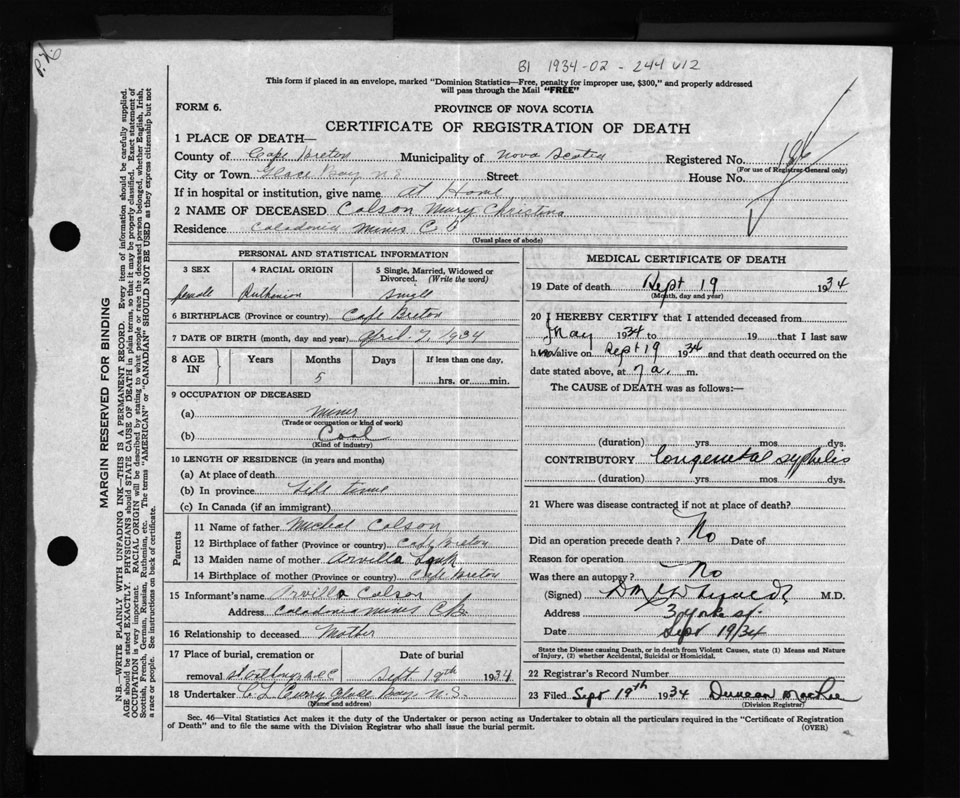 B1 1934-02-244012
This form if placed in an envelope, marked "Dominion Statistics—Free, penalty for improper use, $300," and properly addressed
will pass through the Mail "FREE"
FORM 6.
PROVINCE OF NOVA SCOTIA
CERTIFICATE OF REGISTRATION OF DEATH
1 PLACE OF DEATH—
County of Cape Breton Municipality of Nova Scotia Registered No. 186
(For use of Registrar-General only)
City or Town Glace Bay N.S Street House No.
If in hospital or institution, give name At Home
2 NAME OF DECEASED Colson Mary Christina
Residence Caledonia Mines C B
(Usual place of abode)
PERSONAL AND STATISTICAL INFORMATION
3 SEX 4 RACIAL ORIGIN 5 Single, Married, Widowed or
Divorced. (Write the word)
female Ruthenian Single
6 BIRTHPLACE (Province or country) Cape Breton
7 DATE OF BIRTH (month, day and year) April 7, 1934
8 AGE IN Years Months Days If less than one day,
5 hrs. or min.
9 OCCUPATION OF DECEASED
(a) Miner
(Trade or occupation or kind of work)
(b) Coal
(Kind of industry)
10 LENGTH OF RESIDENCE (in years and months)
(a) At place of death
(b) In province Life time
(c) In Canada (if an immigrant)
Parents
11 Name of father Michal Colson
12 Birthplace of father (Province or country) Cape Breton
13 Maiden name of mother Arvilla
14 Birthplace of mother (Province or country) Cape Breton
15 Informant's name Arvilla Colson
Address Caledonia Mines C.B.
16 Relationship to deceased Mother
17 Place of burial, cremation or Date of burial
removal Sept 19th 1934
18 Undertaker C L Curry Glace Bay N.S.
(Name and address)
MEDICAL CERTIFICATE OF DEATH
19 Date of death Sept 19 1934
(Month, day and year)
20 I HEREBY CERTIFY that I attended deceased from
May 1934 to 19 that I last saw
h alive on Sept 19 1934 and that death occurred on the
date stated above, at 7 a. m.
The CAUSE of DEATH was as follows:—
(duration) yrs. mos. dys.
CONTRIBUTORY Congenital syphilis
(duration) yrs. mos. dys.
21 Where was disease contracted if not at place of death?
Did an operation precede death? No Date of
Reason for operation
Was there an autopsy? No
(Signed) M.D.
Address 3 York st.
Date Sept 19/34
State the Disease causing Death, or in death from Violent Causes, state (1) Means and Nature
of Injury, (2) whether Accidental, Suicidal or Homicidal.
22 Registrar's Record Number
23 Filed Sept 19th 1934 Duncan MacRae
(Division Registrar)
Sec. 46—Vital Statistics Act makes it the duty of the Undertaker or person acting as Undertaker to obtain all the particulars required in the "Certificate of Registration
of Death" and to file the same with the Division Registrar who shall issue the burial permit. (OVER)
MARGIN RESERVED FOR BINDING
N.B.—WRITE PLAINLY, WITH UNFADING INK—THIS IS A PERMANENT RECORD. Every item of information should be carefully supplied.
AGE should be stated EXACTLY. PHYSICIANS should STATE CAUSE OF DEATH in plain terms, so that it may be properly classified. Exact statement of
OCCUPATION is very important. RACIAL ORIGIN will be described by stating to what people or race the deceased person belonged, whether English, Irish,
Scottish, French, German, Russian, Ruthenian, etc. The terms "AMERICAN" or "CANADIAN" SHOULD NOT BE USED as they express citizenship but not
a race or people. See instructions on back of certificate.